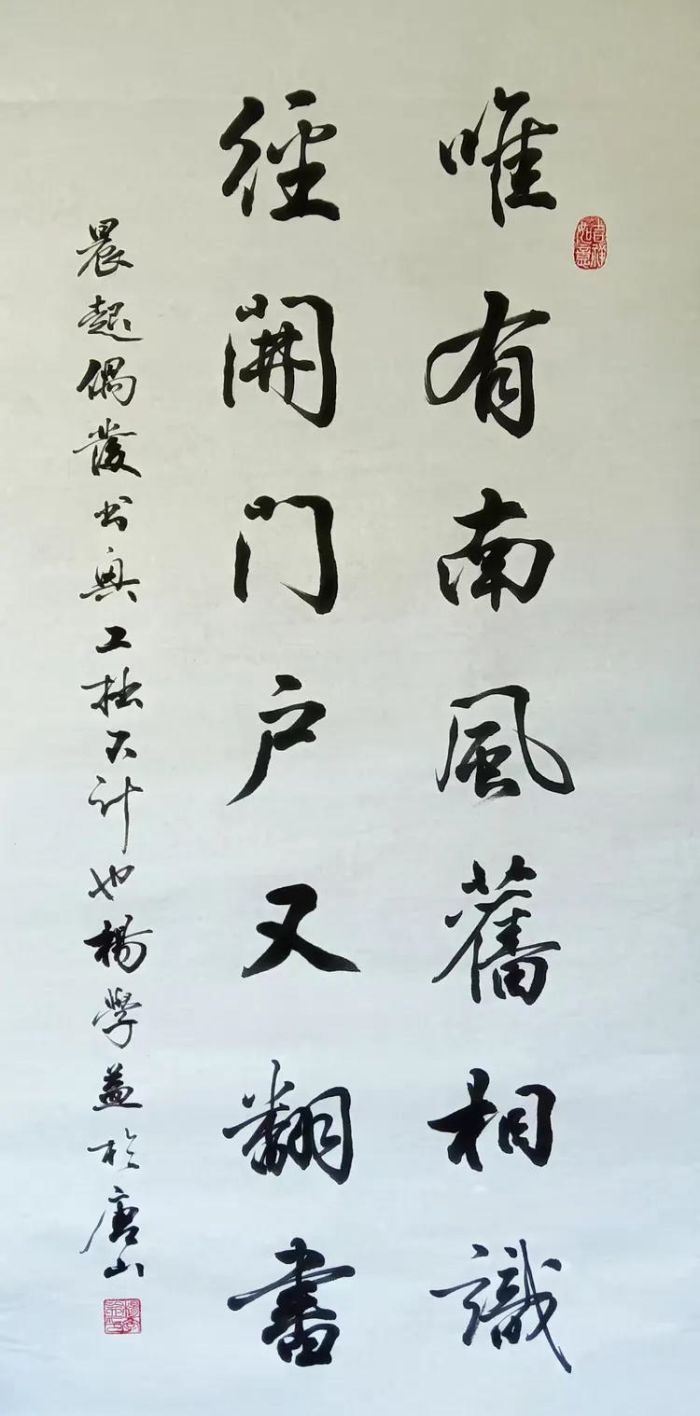 唯有南風舊相識
徑開門户又翻書
晨起偶發書興工拙不計也楊學益於唐山
吉祥如意